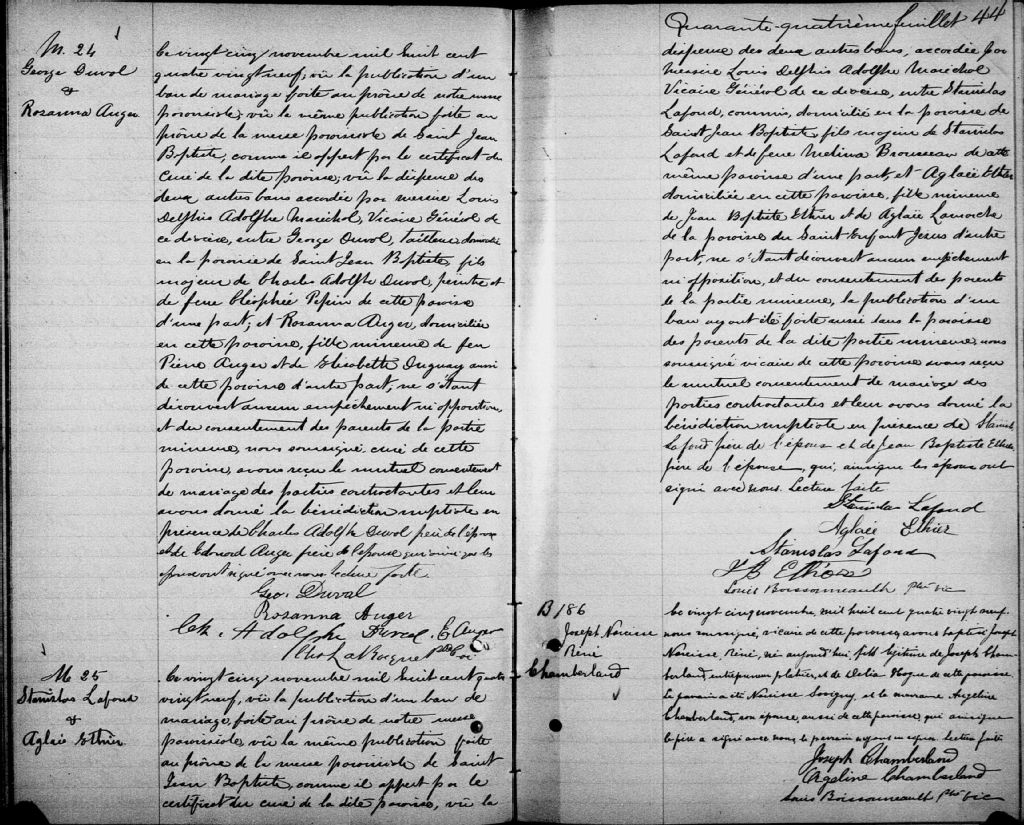 M. 24
George Duval
&
Rosanna Auger
Le vingt cinq novembre mil huit cent
quatre vingt neuf, vû la publication d'un
ban de mariage faite au prône de notre messe
paroissiale, vû la même publication faite au
prône de la messe paroissiale de Saint Jean
Baptiste, comme il appert par le certificat du
Curé de la dite paroisse; vû la dispense des
deux autres bans accordée par messire Louis
Delphis Adolphe Maréchal, Vicaire Général de
ce diocèse, entre George Duval, tailleur, domicilié
en la paroisse de Saint Jean Baptiste, fils
majeur de Charles Adolphe Duval, peintre et
de feue Cléophée Pepin de cette paroisse
d'une part; et Rosanna Auger, domiciliée
en cette paroisse, fille mineure de feu
Pierre Auger et de Elisabeth Duguay aussi
de cette paroisse d'autre part, ne s'étant
découvert aucun empêchement ni opposition,
et du consentement des parents de la partie
mineure, nous soussigné, curé de cette
paroisse, avons reçu le mutuel consentement
de mariage des parties contractantes et leur
avons donné la bénédiction nuptiale en
présence de Charles Adolphe Duval père de l'époux
et de Edouard Auger frère de l'épouse qui ainsi que les
époux ont signé avec nous. Lecture faite
Geo. Duval
Rosanna Auger
Ch. Adolphe Duval. E Auger
M 25
Stanislas Lafond
&
Aglaée Ethier
Le vingt cinq novembre mil huit cent quatre
vingt neuf, vû la publication d'un ban de
mariage, faite au prône de notre messe
paroissiale, vû la même publication faite
au prône de la messe paroissiale de Saint
Jean Baptiste, comme il appert par le
certificat du curé de la dite paroisse, vû la
Quarante-quatrième feuillet 44
dispense des deux autres bans, accordée par
Messire Louis Delphis Adolphe Maréchal
Vicaire Général de ce diocèse, entre Stanislas
Lafond, commis, domicilié en la paroisse de
Saint Jean Baptiste, fils majeur de Stanislas
Lafond et de feue Melina Brousseau de cette
même paroisse d'une part, et Aglaée Ethier
domiciliée en cette paroisse, fille mineure
de Jean Baptiste Ethier et de Aglaée Lamoche
de la paroisse du Saint Enfant Jésus d'autre
part, ne s'étant découvert aucun empêchement
ni opposition, et du consentement des parents
de la partie mineure, la publication d'un
ban ayant été faite aussi dans la paroisse
des parents de la dite partie mineure, nous
soussigné vicaire de cette paroisse avons reçu
le mutuel consentement de mariage des
parties contractantes et leur avons donné la
bénédiction nuptiale en présence de Stanislas
Lafond père de l'époux et de Jean Baptiste Ethier
père de l'épouse, qui, ainsi que les époux ont
signé avec nous. Lecture faite
Stanislas Lafond
Aglaée Ethier
Stanislas Lafond
J B Ethier
Louis Boissonneault ptre vic
B 186
Joseph Narcisse
René
Chamberland
Le vingt cinq novembre, mil huit cent quatre vingt neuf,
nous soussigné, vicaire de cette paroisse, avons baptisé Joseph
Narcisse, René, né aujourd'hui, fils légitime de Joseph Cham-
berland, entrepreneur plâtrier, et de Delia de cette paroisse.
Le parrain a été Narcisse Savigny et la marraine Angéline
Chamberland, son épouse, aussi de cette paroisse, qui ainsi que
le père a signé avec nous, le parrain Lecture faite
Joseph Chamberland
Ageline Chamberland
Louis Boissonneault ptre vic